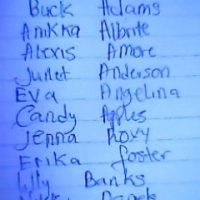 Buck Adams
Anikka Albrite
Alexis Amore
Juliet Anderson
Eva Angelina
Candy Apples
Jenna Roxy
Erika Foster
Lilly Banks